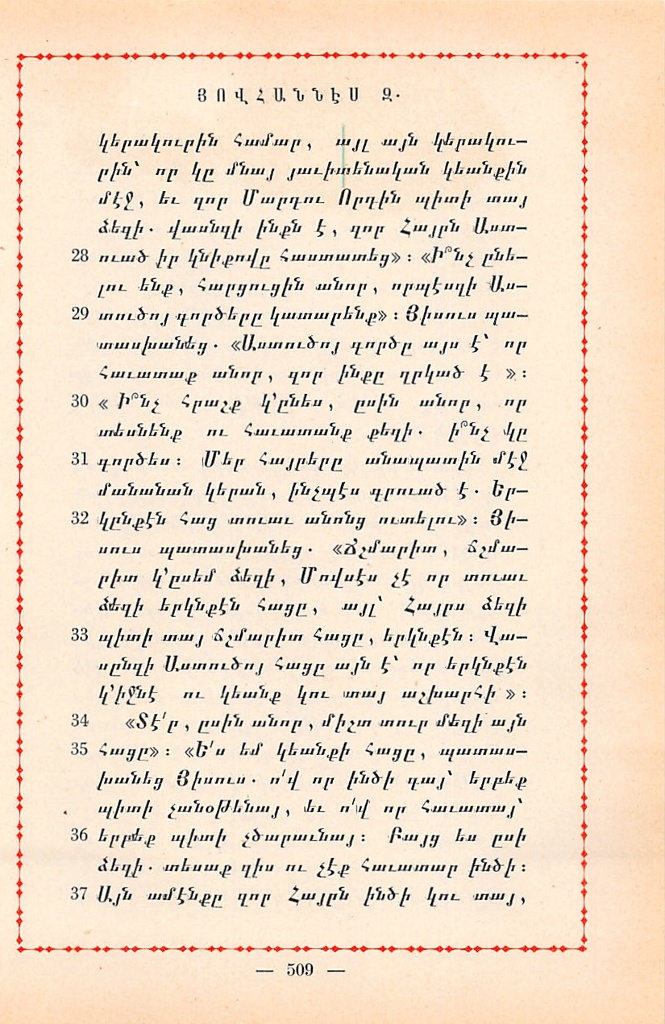 ՅՈՎՀԱՆՆԷՍ Զ.
կերակուրին համար, այլ այն կերակու–
րին՝ որ կը մնայ յաւիտենական կեանքին
մէջ, եւ զոր Մարդու Որդին պիտի տայ
ձեզի. վասնզի ինքն է, զոր Հայրն Աստ–
28 ուած իր կնիքովը հաստատեց»: «Ի՞նչ ընե–
լու ենք, հարցուցին անոր, որպէսզի Աս–
29 տուծոյ գործերը կատարենք»: Յիսուս պա–
տասխանեց. «Աստուծոյ գործը այս է՝ որ
հաւատաք անոր, զոր ինքը ղրկած է »:
30 « Ի՞նչ հրաշք կ'ընես, ըսին անոր, որ
տեսնենք ու հաւատանք քեզի. ի՞նչ կը
31 գործես: Մեր հայրերը անապատին մէջ
մանանան կերան, ինչպէս գրուած է. Եր–
32 կընքէն հաց տուաւ անոնց ուտելու»: Յի–
սուս պատասխանեց. «Ճշմարիտ, ճշմա–
րիտ կ'ըսեմ ձեզի, Մովսէս չէ որ տուաւ
ձեզի երկնքէն հացը, այլ՝ Հայրս ձեզի
33 պիտի տայ ճշմարիտ հացը, երկնքէն: Վա–
սընզի Աստուծոյ հացը այն է՝ որ երկնքէն
կ'իջնէ ու կեանք կու տայ աշխարհի »:
34 «Տէ՛ր, ըսին անոր, միշտ տուր մեզի այն
35 հացը»: «Ե՛ս եմ կեանքի հացը, պատաս–
խանեց Յիսուս. ո՛վ որ ինծի գայ՝ երբեք
պիտի չանօթենայ, եւ ո՛վ որ հաւատայ՝
36 երբեք պիտի չծարաւնայ: Բայց ես ըսի
ձեզի. տեսաք զիս ու չէք հաւատար ինծի:
37 Այն ամէնքը զոր Հայրն ինծի կու տայ,
— 509 —